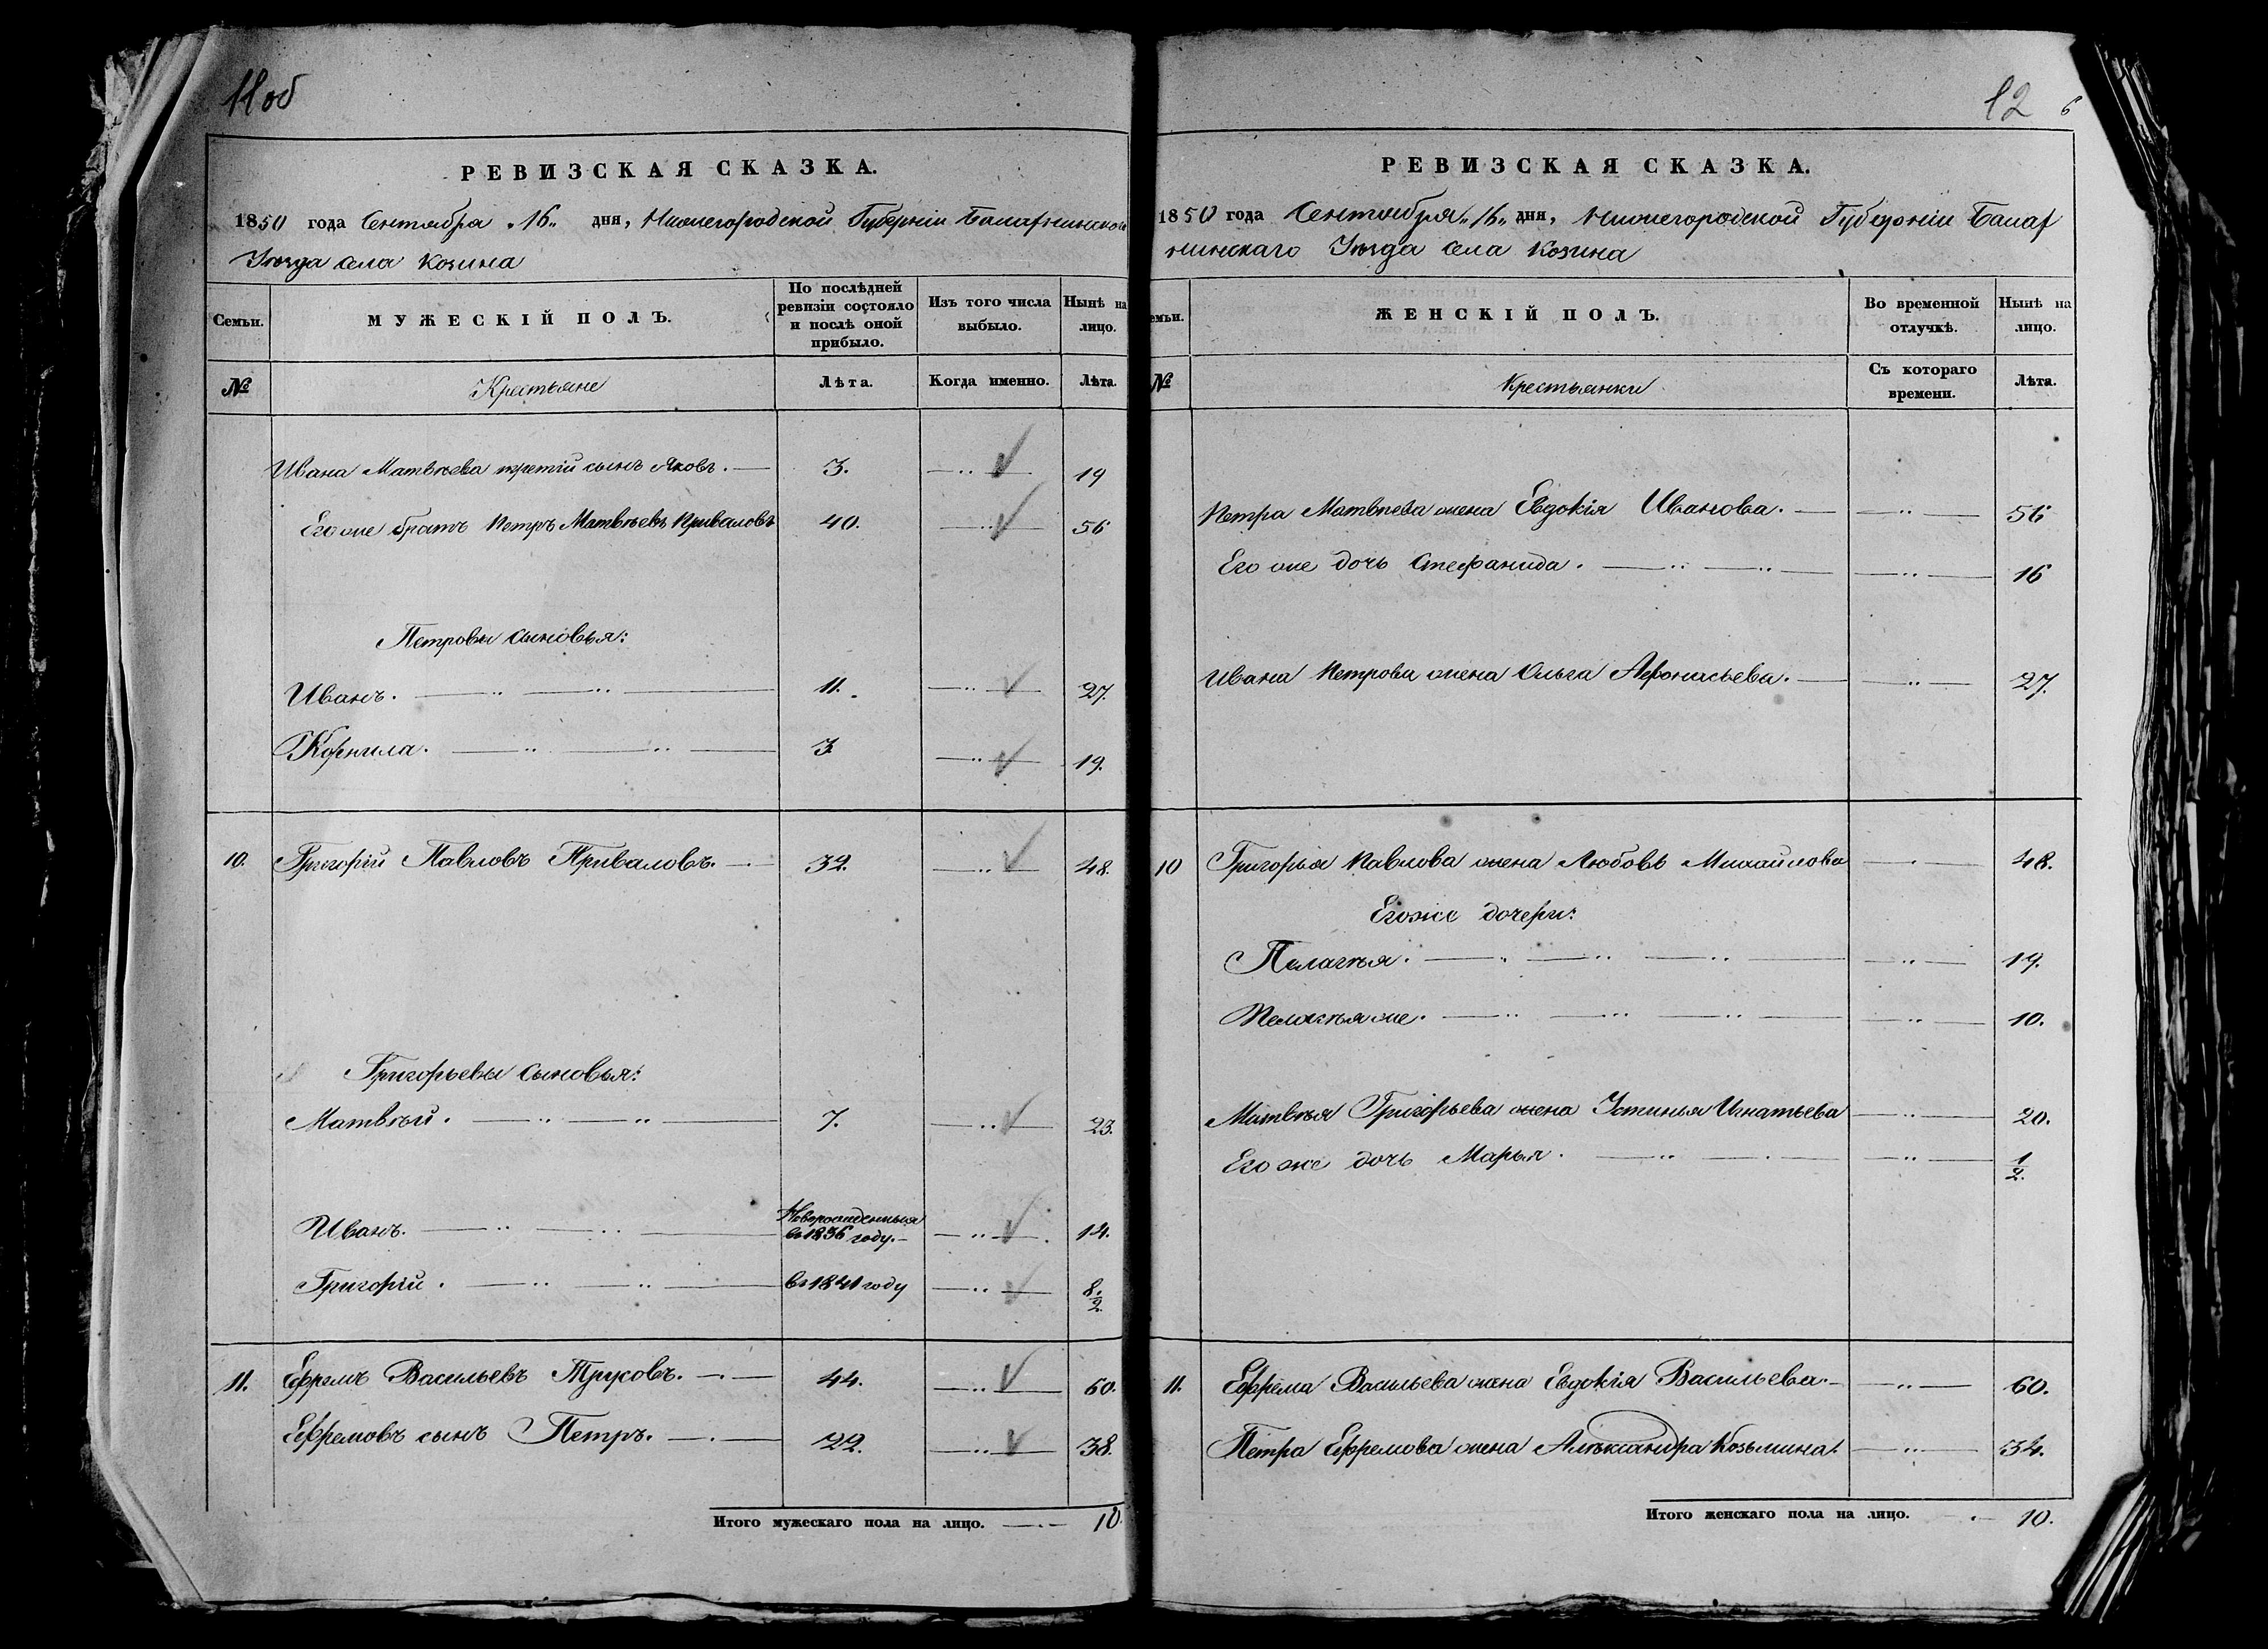 11об
РЕВИЗСКАЯ СКАЗКА.
1850 года Сентября „16„ дня, Нижегородской Губерніи Балахнинскаго
Уѣзда села Козина
Семьи.
МУЖЕСКІЙ ПОЛЪ.
По послѣдней ревизіи состояло и послѣ оной прибыло.
Изъ того числа выбыло.
Нынѣ на лицо.
№
Крестьяне
Лѣта.
Когда именно.
Лѣта.
Ивана Матвѣева третій сынъ Яковъ. 3. 19
Его же братъ Петръ Матвѣевъ Приваловъ 40. 56
Петровы сыновья:
Иванъ. 11. 27.
Корнила. 3 19.
10. Григорій Павловъ Приваловъ. 32. 48.
Григорьевы сыновья:
Матвѣй. 7. 23.
Иванъ. Новорожденныя въ 1836 году. 14.
Григорій. въ 1841 году 8 1/2.
11. Ефремъ Васильевъ Трусовъ. 44. 60.
Ефремовъ сынъ Петръ. 22. 38.
Итого мужескаго пола на лицо. 10.
12 6
РЕВИЗСКАЯ СКАЗКА.
1850 года Сентября „16„ дня, Нижегородской Губерніи Балах
нинскаго Уѣзда села Козина
емьи.
ЖЕНСКІЙ ПОЛЪ.
Во временной отлучкѣ.
Нынѣ на лицо.
№
Крестьянки
Съ котораго времени.
Лѣта.
Петра Матвѣева жена Евдокія Иванова. 56
Его же дочь Степанида. 16
Ивана Петрова жена Ольга Афонасьева. 27.
10 Григорья Павлова жена Любовь Михайлова 48.
Егоже дочери:
Пелагѣя. 19.
Пелагѣя же. 10.
Матвѣя Григорьева жена Устинья Игнатьева 20.
Его же дочь Марья. 1/2.
11. Ефрема Васильева жена Евдокія Васильева. 60.
Петра Ефремова жена Александра Козьмина. 34.
Итого женскаго пола на лицо. 10.